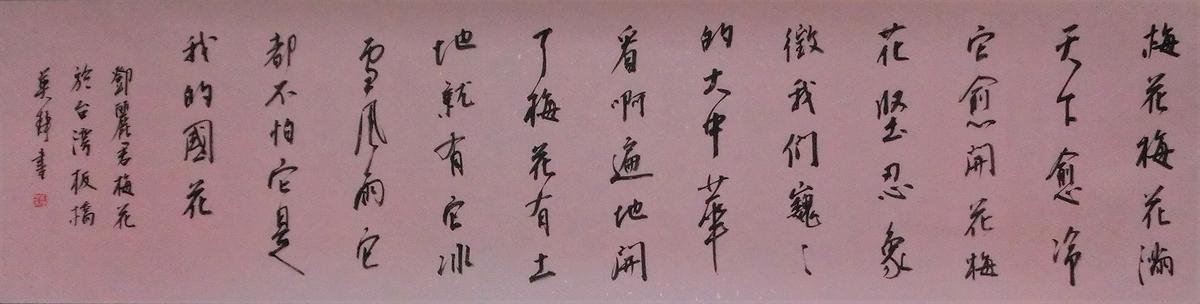 梅花梅花滿
天下愈冷
它愈開花梅
花堅忍象
徵我们巍〻
的大中華
看啊遍地開
了梅花有土
地就有它冰
雪風雨它
都不怕它是
我的國花
鄧麗君梅花
於台灣板橋
英靜書